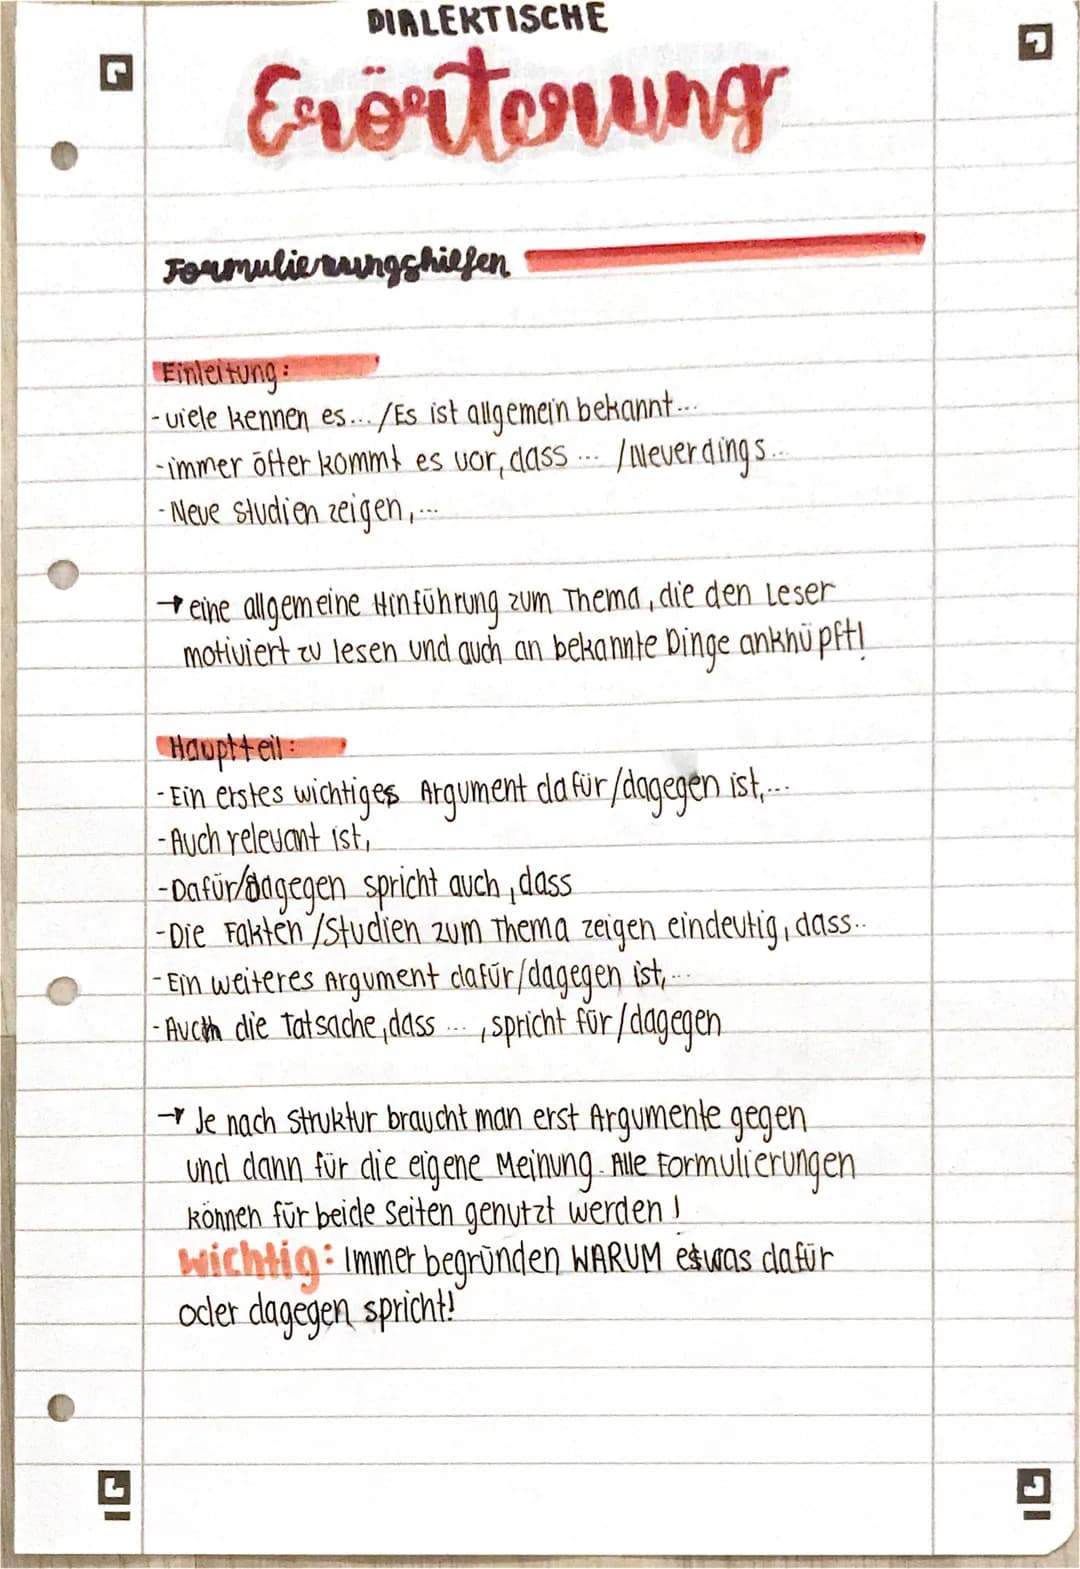 DIALEKTISCHE
Erörterung
Formulierungshilfen
Einleitung:
- viele kennen es... /Es ist allgemein bekannt...
- immer öfter kommt es vor, dass ... /Neuerdings...
- Neue Studien zeigen,...
→ eine allgemeine Hinführung zum Thema, die den Leser
motiviert zu lesen und auch an bekannte Dinge anknüpft!
Hauptteil:
- Ein erstes wichtiges Argument dafür/dagegen ist,...
- Auch relevant ist,
- Dafür/dagegen spricht auch, dass
- Die Fakten /Studien zum Thema zeigen eindeutig, dass..
- Ein weiteres Argument dafür/dagegen ist,...
- Auch die Tatsache, dass ... , spricht für/dagegen
→ Je nach Struktur braucht man erst Argumente gegen
und dann für die eigene Meinung. Alle Formulierungen
können für beide Seiten genutzt werden!
Wichtig: Immer begründen WARUM etwas dafür
oder dagegen spricht!